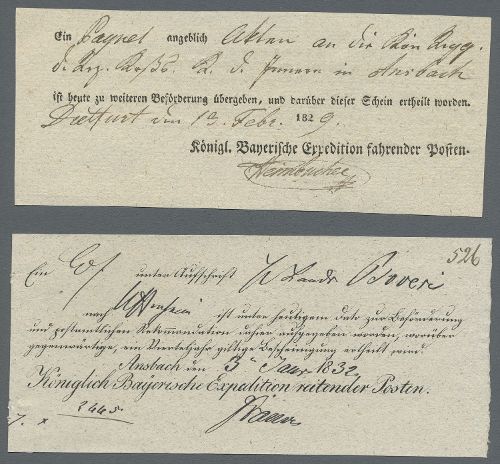 Ein Paquet angeblich Akten an die Kön Regg.
d. K. d. Innern in Ansbach
ist heute zu weiteren Beförderung übergeben, und darüber dieser Schein ertheilt worden.
Dietfurt den 13. Febr. 1829.
Königl. Bayerische Expedition fahrender Posten.
526
Ein unter Aufschrift Boveri
nach ist unter heutigem Dato zur Beförderung
und postamtlichen Rekomandation anher aufgegeben worden, worüber
gegenwärtige, ein Vierteljahr giltige Bescheinigung ertheilt wird.
Ansbach den 3 Jaur 1832
Königlich Bayerische Expedition reitender Posten.
2445.